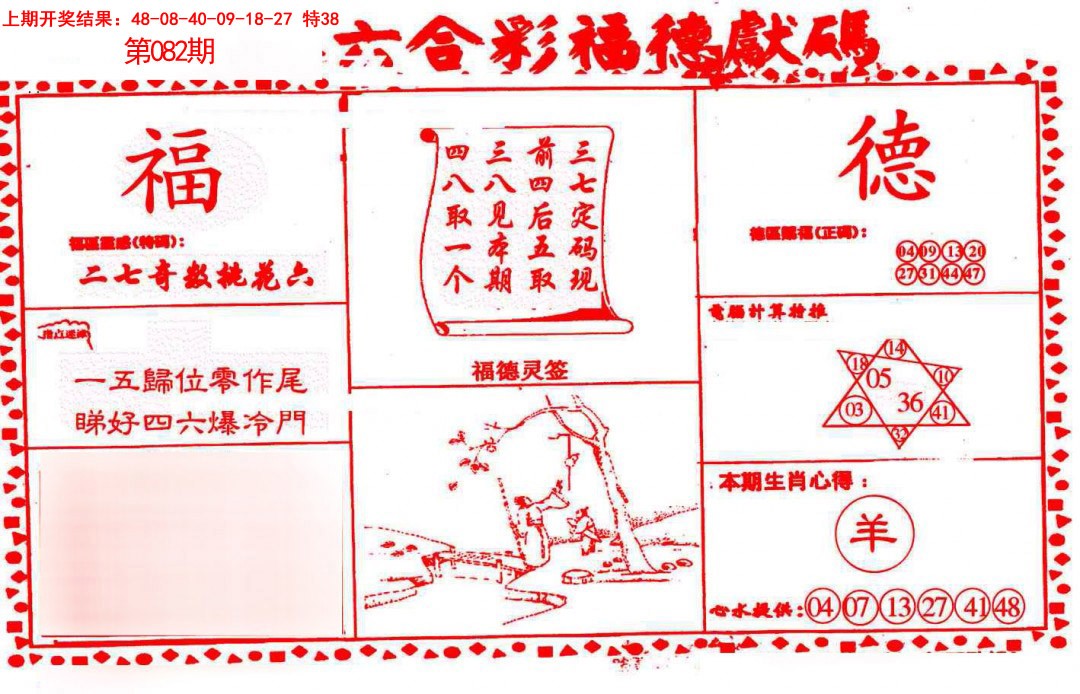 上期开奖结果：48-08-40-09-18-27 特38
第082期
六合彩福德獻碼
福
福區靈感(特码):
二七奇数桃花六
一五歸位零作尾
睇好四六爆冷門
三七定码现
前四后五取
三八见本期
四八取一个
福德灵签
德
(正码):
04 09 13 20
27 31 44 47
電腦計算特推
14
18 10
05
36
03 41
32
本期生肖心得：
羊
心水提供: 04 07 13 27 41 48